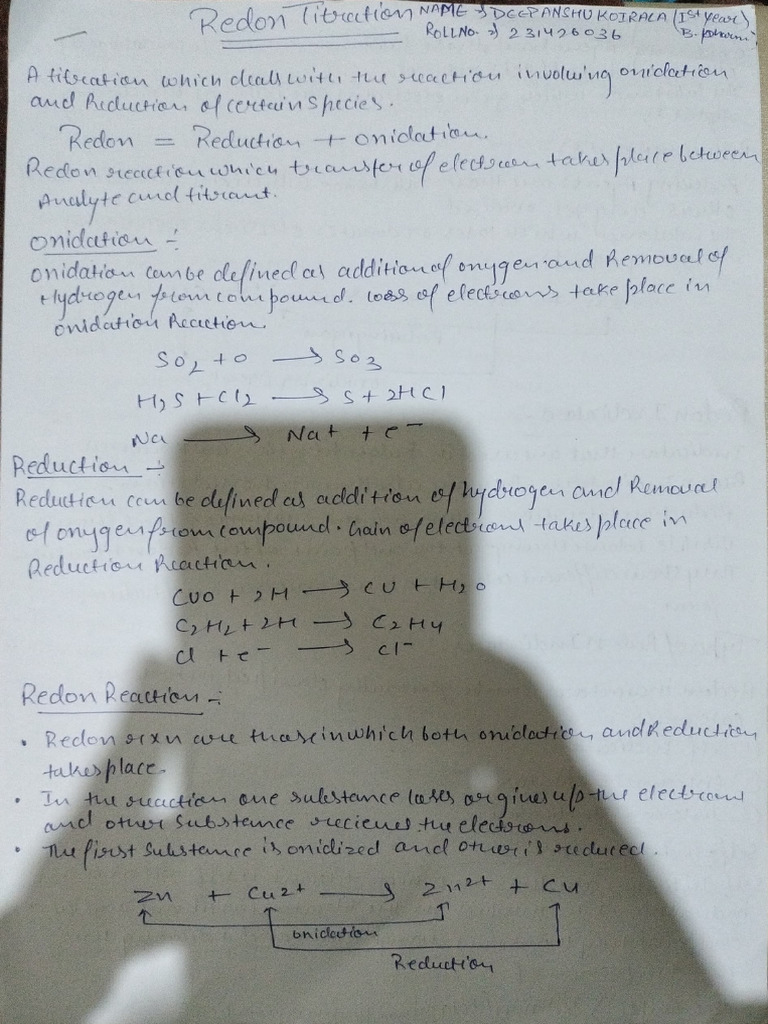 Redox Titration NAME → DEEPANSHU KOIRALA (Ist year)
ROLLNO. → 231426036 B. pharm
A titration which deals with the reaction involving oxidation
and Reduction of certain species.
Redox = Reduction + oxidation.
Redox reaction which transfer of electron takes place between
Analyte and titrant.
Oxidation :-
Oxidation can be defined as addition of oxygen and Removal of
Hydrogen from compound. loss of electrons take place in
oxidation Reaction.
SO2 + O → SO3
H2S + Cl2 → S + 2HCl
Na → Na+ + e-
Reduction :-
Reduction can be defined as addition of hydrogen and Removal
of oxygen from compound. Gain of electrons takes place in
Reduction Reaction.
CUO + 2H → CU + H2O
C2H2 + 2H → C2H4
Cl + e- → Cl-
Redox Reaction :-
• Redox rxn are those in which both oxidation and Reduction
takes place.
• In the reaction one substance loses or gives up the electrons
and other substance recieves the electrons.
• The first substance is oxidized and other is reduced.
Zn + Cu2+ → Zn2+ + Cu
oxidation
Reduction